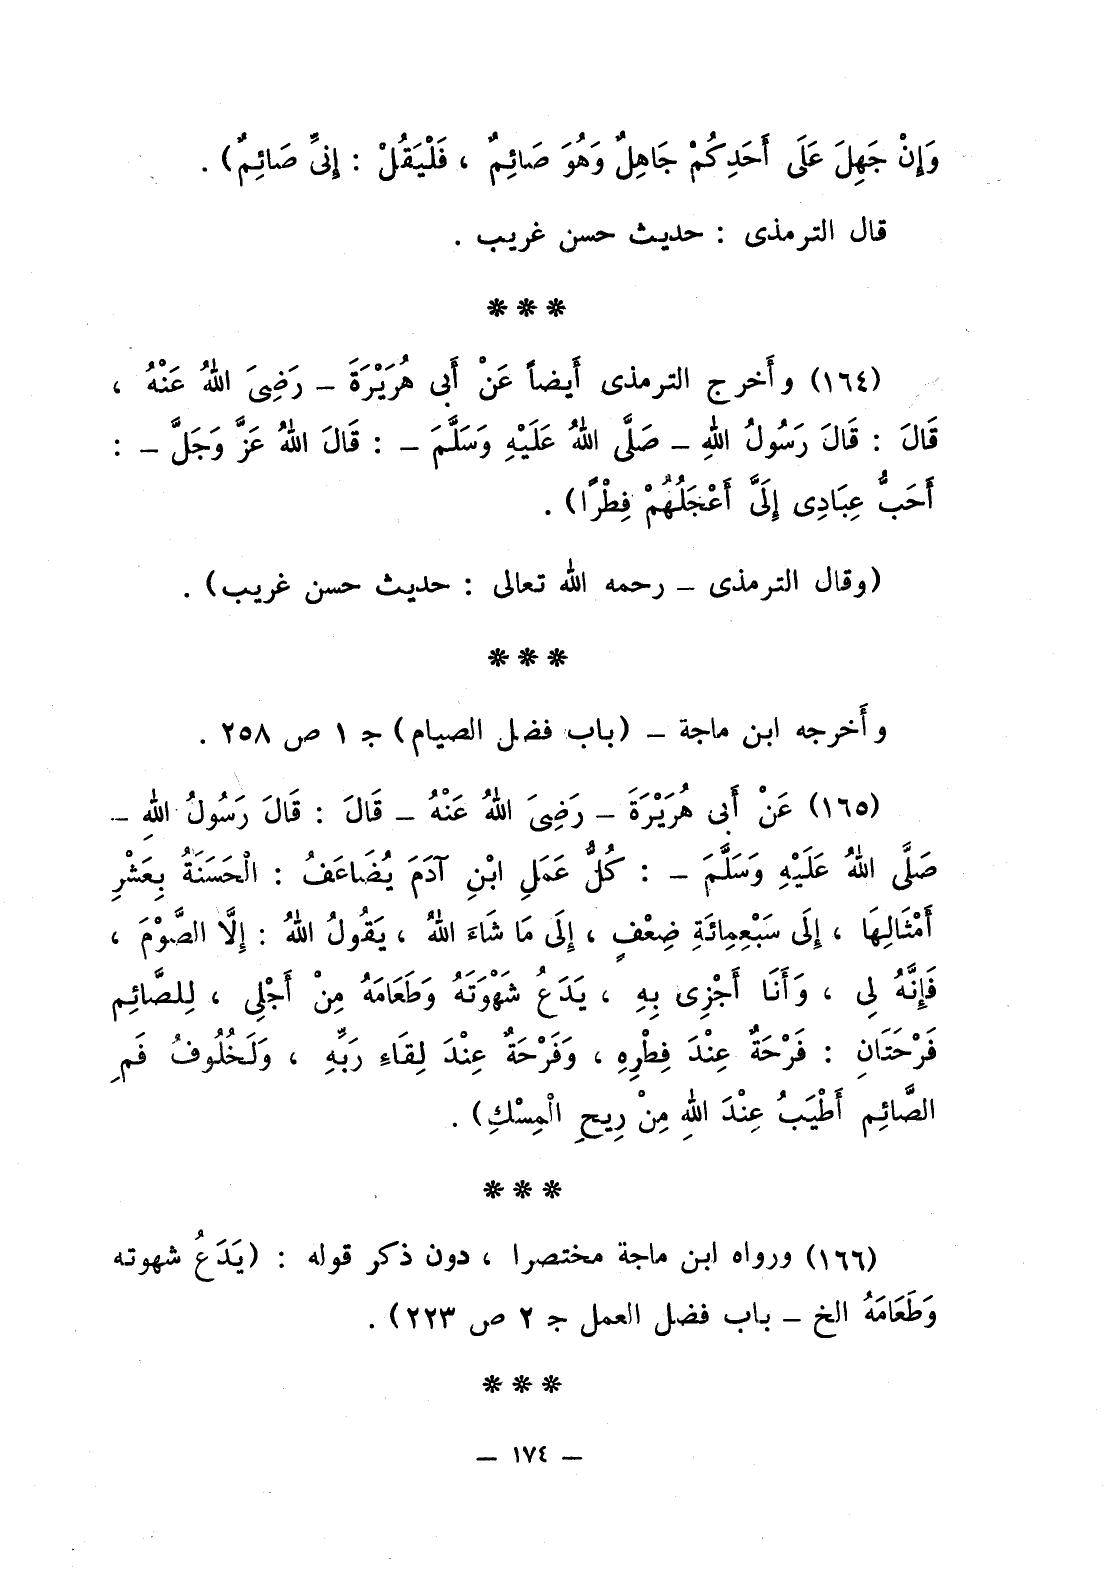 وَإِنْ جَهِلَ عَلَى أَحَدِكُمْ جَاهِلٌ وَهُوَ صَائِمٌ ، فَلْيَقُلْ : إِنِّى صَائِمٌ) .
قال الترمذى : حديث حسن غريب .
* * *
(١٦٤) وأَخرج الترمذى أَيضاً عَنْ أَبى هُرَيْرَةَ – رَضِىَ اللهُ عَنْهُ ،
قَالَ : قَالَ رَسُولُ اللهِ – صَلَّى اللهُ عَلَيْهِ وَسَلَّمَ – : قَالَ اللهُ عَزَّ وَجَلَّ – :
أَحَبُّ عِبَادِى إِلَىَّ أَعْجَلُهُمْ فِطْرًا) .
(وقال الترمذى – رحمه الله تعالى : حديث حسن غريب) .
* * *
وأَخرجه ابن ماجة – (باب فضل الصيام) جـ ١ ص ٢٥٨ .
(١٦٥) عَنْ أَبى هُرَيْرَةَ – رَضِىَ اللهُ عَنْهُ – قَالَ : قَالَ رَسُولُ اللهِ –
صَلَّى اللهُ عَلَيْهِ وَسَلَّمَ – : كُلُّ عَمَلِ ابْنِ آدَمَ يُضَاعَفُ : الْحَسَنَةُ بِعَشْرِ
أَمْثَالِهَا ، إِلَى سَبْعِمِائَةِ ضِعْفٍ ، إِلَى مَا شَاءَ اللهُ ، يَقُولُ اللهُ : إِلَّا الصَّوْمَ ،
فَإِنَّهُ لِى ، وَأَنَا أَجْزِى بِهِ ، يَدَعُ شَهْوَتَهُ وَطَعَامَهُ مِنْ أَجْلِى ، لِلصَّائِمِ
فَرْحَتَانِ : فَرْحَةٌ عِنْدَ فِطْرِهِ ، وَفَرْحَةٌ عِنْدَ لِقَاءِ رَبِّهِ ، وَلَخُلُوفُ فَمِ
الصَّائِمِ أَطْيَبُ عِنْدَ اللهِ مِنْ رِيحِ الْمِسْكِ) .
* * *
(١٦٦) ورواه ابن ماجة مختصرا ، دون ذكر قوله : (يَدَعُ شهوته
وَطَعَامَهُ الخ – باب فضل العمل جـ ٢ ص ٢٢٣) .
* * *
– ١٧٤ –